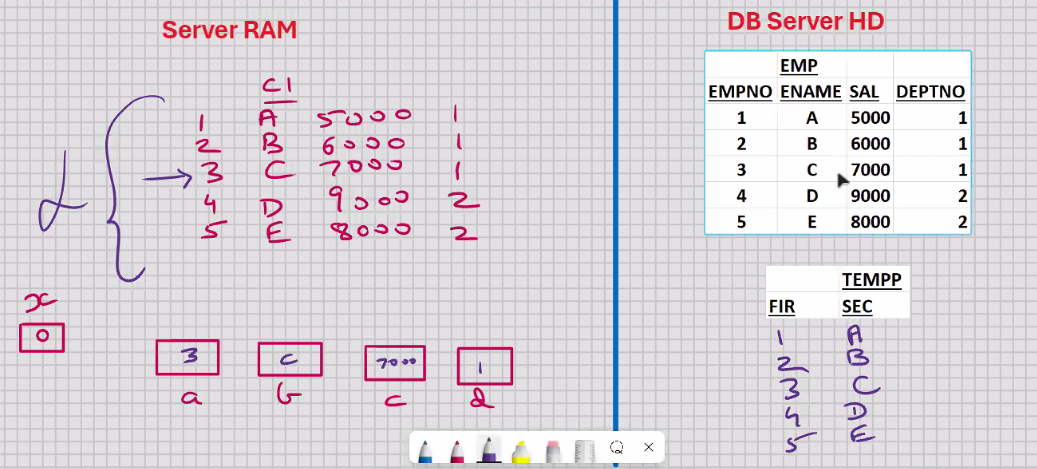 Server RAM
C1
1 A 5000 1
2 B 6000 1
3 C 7000 1
4 D 9000 2
5 E 8000 2
x
0
3 C 7000 1
a b c d
DB Server HD
EMP
EMPNO ENAME SAL DEPTNO
1 A 5000 1
2 B 6000 1
3 C 7000 1
4 D 9000 2
5 E 8000 2
TEMPP
FIR SEC
1 A
2 B
3 C
4 D
5 E